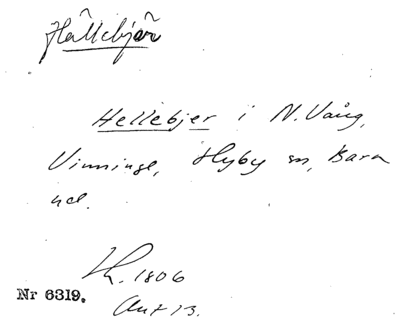 Hällebjär
Hellebjer i N. Vång,
Vinninge, Hyby sn, Bara
hd.
Lk. 1806
Nr 6319.
Akt 13.